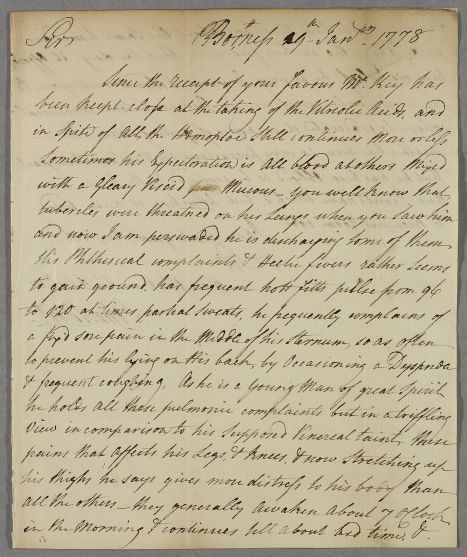 Sir Bo:ness 29th Janry 1778
Since the receipt of your favour Mr. Key has
been keept close at the taking of the Vitriolic Acids, and
in Spite of all, the Hemoptoe still continues more or less
Sometimes his Expectoration is all blood at others Mixed
with a Gleary Viscid Mucous — you well know that
tubercles were threatned on his Lungs when you saw him
and now I am perswaded he is discharging some of them
His Phthisical complaints & Hectic fevers rather seems
to gain ground, has frequent hott fitts pulse from 96
to 120 at times partial Sweats, he frequently complains of
a fixd sore pain in the Middle of his Sternum, so as often
to prevent his lying on His back, by Occasioning a Dyspnoa
& frequent coughing. As he is a Young Man of great Spirit
he holds all these pulmonic complaints but in a triffling
view in comparison to his supposed Venereal taint, these
pains that affects his Legs, & Knees, & now Stretching up
his thighs, he says gives more distress to his body than
all the others — they generally awaken about 7 OClock
in the Morning & continues till about bed time, &